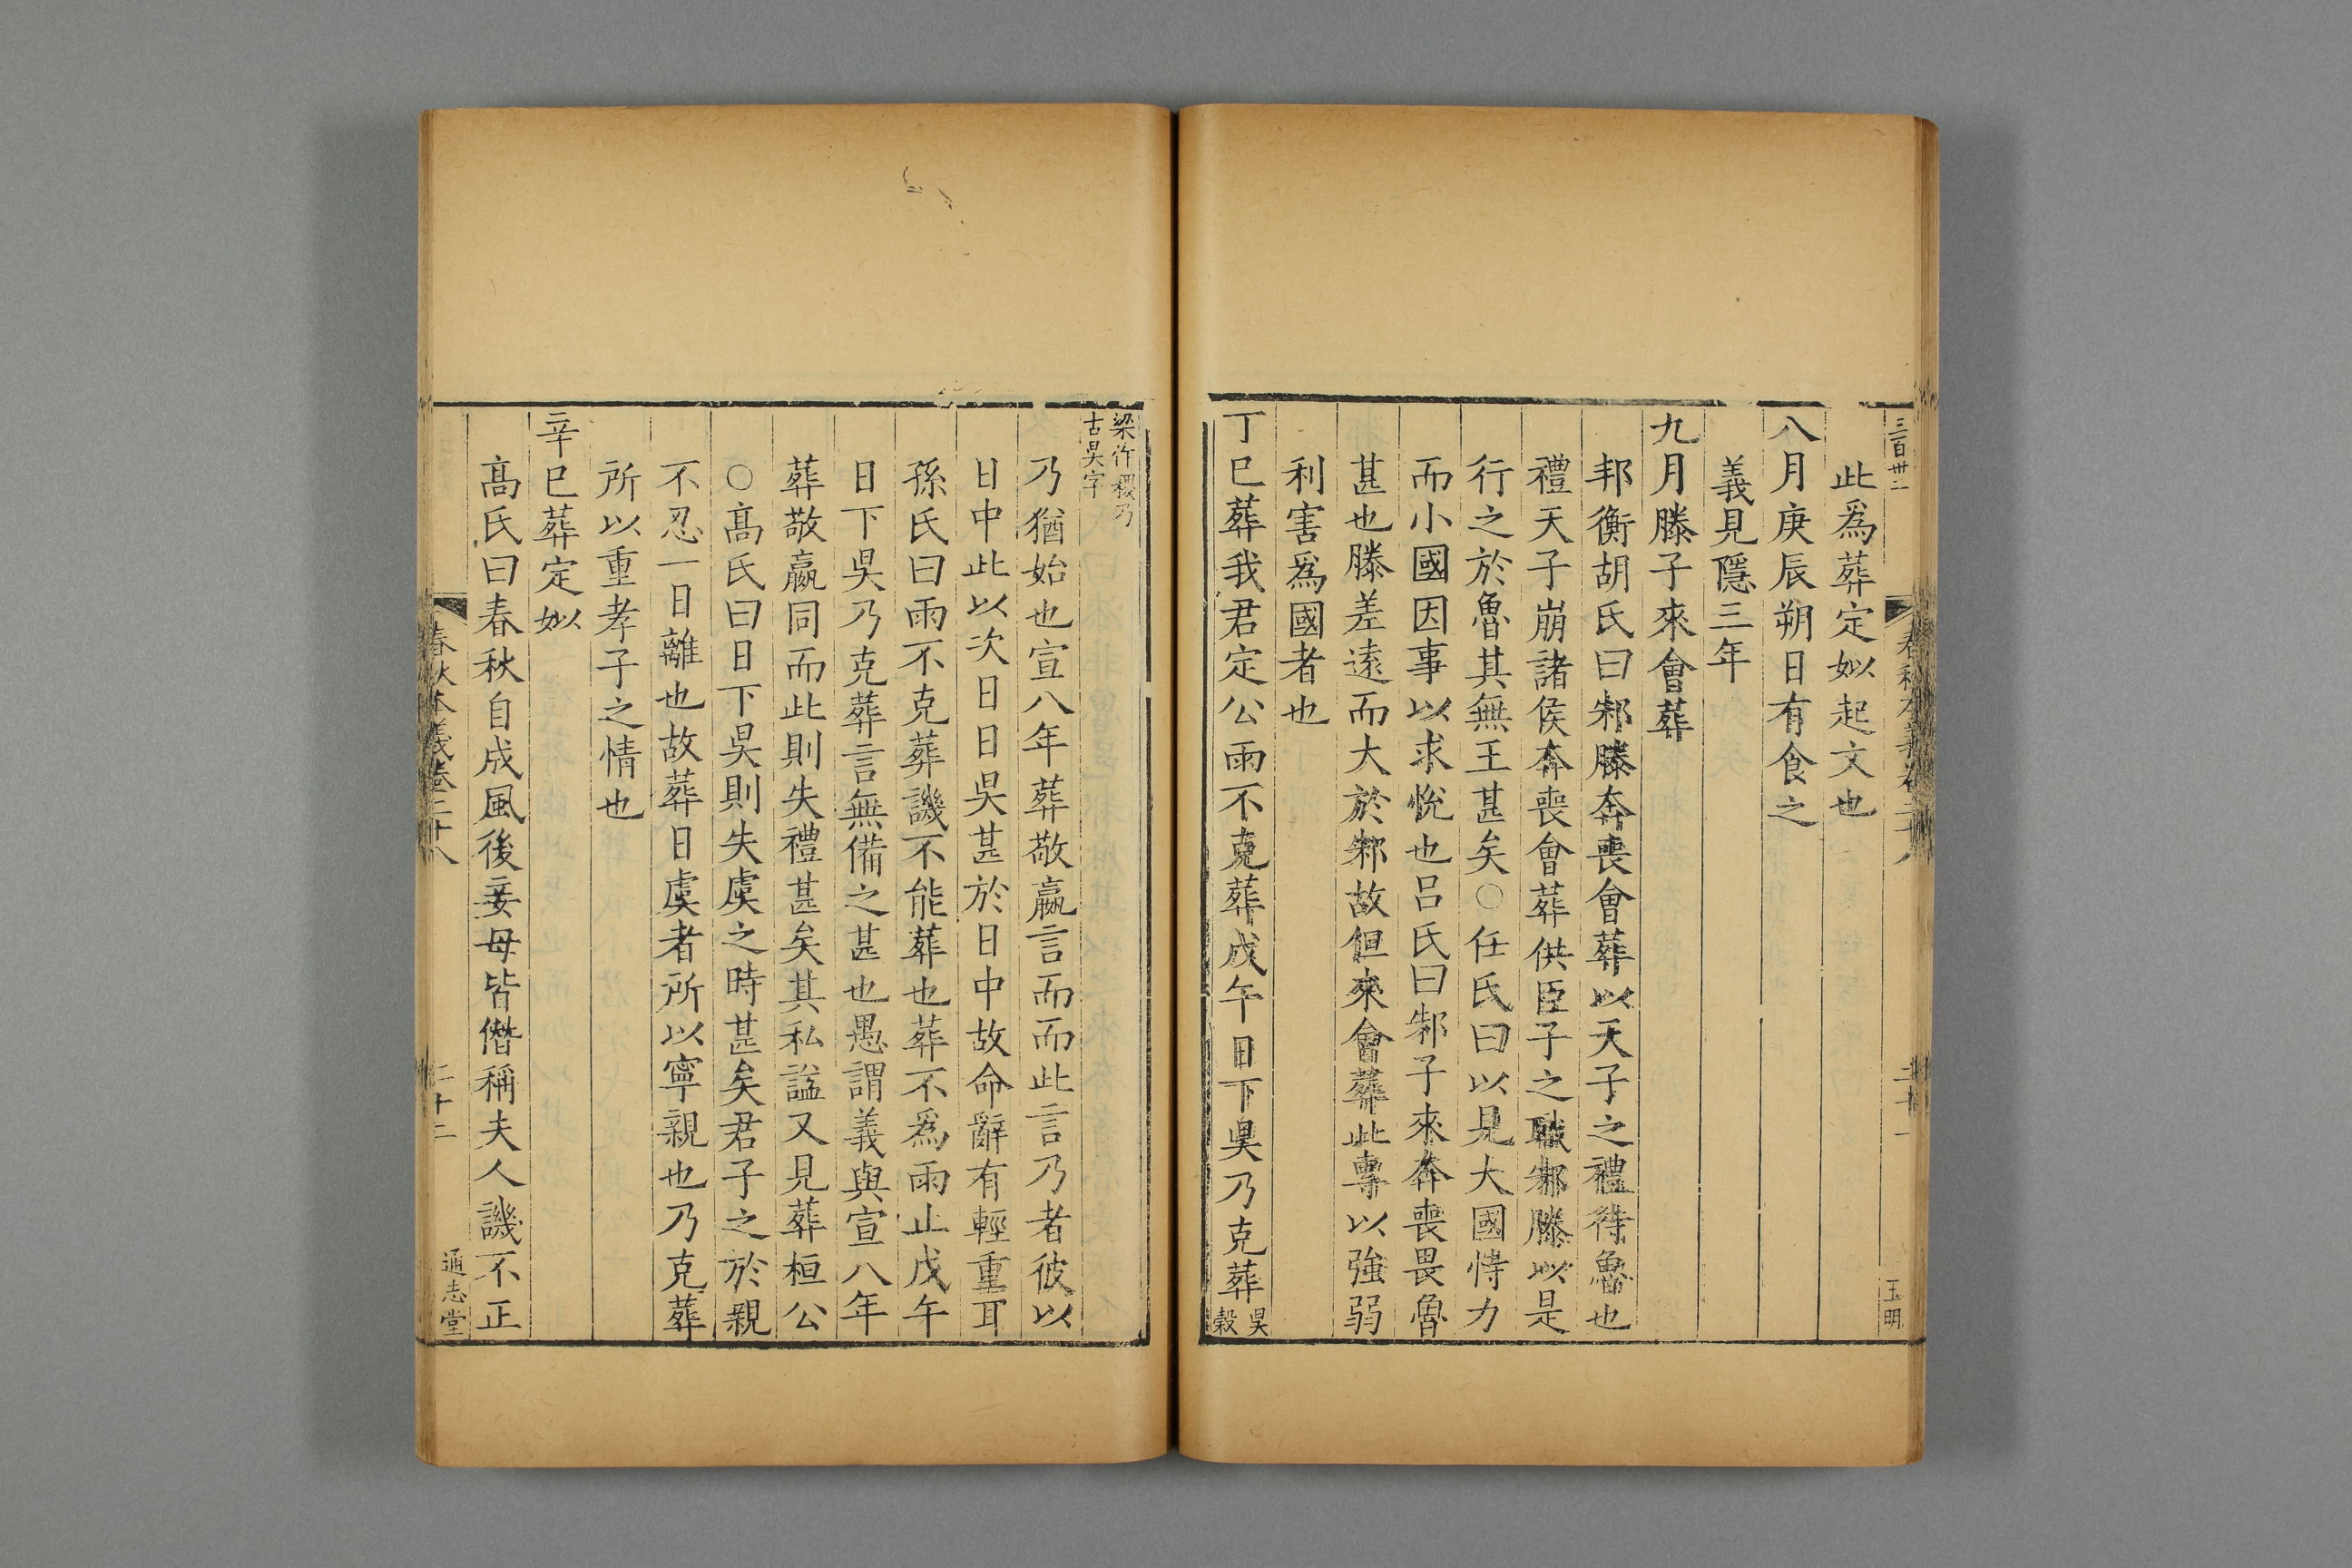 三百卅二
春秋本義卷二十八
二十一
玉明
此爲葬定姒起文也
八月庚辰朔日有食之
義見隱三年
九月滕子來會葬
邦衡胡氏曰邾滕奔喪會葬以天子之禮待魯也
禮天子崩諸侯奔喪會葬供臣子之職邾滕以是
行之於魯其無王甚矣○任氏曰以見大國恃力
而小國因事以求恱也吕氏曰邾子來奔喪畏魯
甚也滕差遠而大於邾故但來會葬此專以強弱
利害爲國者也
丁巳葬我君定公雨不克葬戊午日下昃乃克葬昃穀
梁作稷乃古昃字
乃猶始也宣八年葬敬嬴言而而此言乃者彼以
日中此以次日日昃甚於日中故命辭有輕重耳
孫氏曰雨不克葬譏不能葬也葬不爲雨止戊午
日下昃乃克葬言無備之甚也愚謂義與宣八年
葬敬嬴同而此則失禮甚矣其私謚又見葬桓公
○髙氏曰日下昃則失虞之時甚矣君子之於親
不忍一日離也故葬日虞者所以寧親也乃克葬
所以重孝子之情也
辛巳葬定姒
髙氏曰春秋自成風後妾母皆僭稱夫人譏不正
春秋本義卷二十八
二十二
通志堂